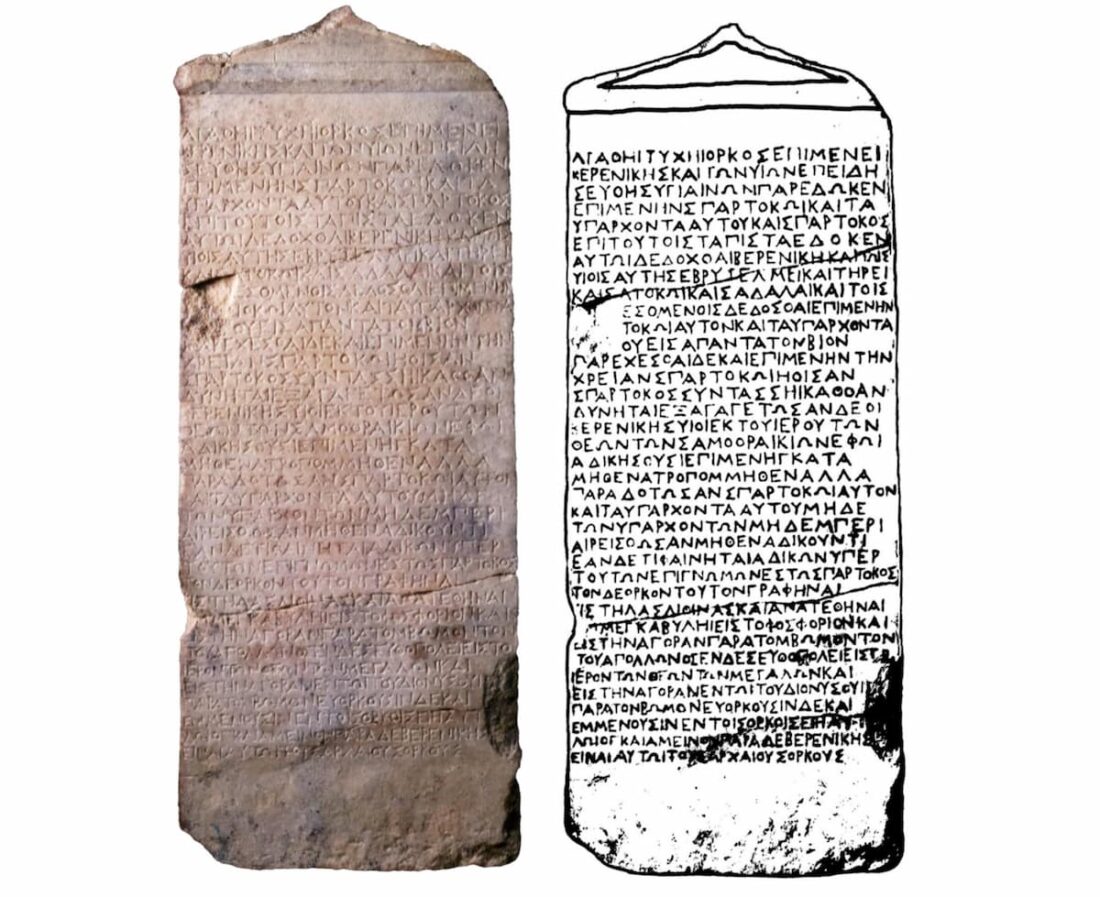 ΑΓΑΘΗΙΤΥΧΗΙΟΡΚΟΣΕΠΙΜΕΝΕΙ
ΒΕΡΕΝΙΚΗΣΚΑΙΤΩΝΥΙΩΝΕΠΕΙΔΗ
ΣΕΥΘΗΣΥΓΙΑΙΝΩΝΠΑΡΕΔΩΚΕΝ
ΕΠΙΜΕΝΗΝΣΠΑΡΤΟΚΩΙΚΑΙΤΑ
ΥΠΑΡΧΟΝΤΑΑΥΤΟΥΚΑΙΣΠΑΡΤΟΚΟΣ
ΕΠΙΤΟΥΤΟΙΣΤΑΠΙΣΤΑΕΔΟΚΕΝ
ΑΥΤΩΙΔΕΔΟΧΘΑΙΒΕΡΕΝΙΚΗΚΑΙΤΟΙΣ
ΥΙΟΙΣΑΥΤΗΣΕΒΡΥΖΕΛΜΕΙΚΑΙΤΗΡΕΙ
ΚΑΙΣΑΤΟΚΩΙΚΑΙΣΑΔΑΛΑΙΚΑΙΤΟΙΣ
ΕΣΟΜΕΝΟΙΣΔΕΔΟΣΘΑΙΕΠΙΜΕΝΗΝ
ΤΟΚΩΙΑΥΤΟΝΚΑΙΤΑΥΠΑΡΧΟΝΤΑ
ΟΥΕΙΣΑΠΑΝΤΑΤΟΝΒΙΟΝ
ΠΑΡΕΧΕΣΘΑΙΔΕΚΑΙΕΠΙΜΕΝΗΝΤΗΝ
ΧΡΕΙΑΝΣΠΑΡΤΟΚΩΙΗΟΙΣΑΝ
ΣΠΑΡΤΟΚΟΣΣΥΝΤΑΣΣΗΙΚΑΘΟΑΝ
ΔΥΝΗΤΑΙΕΞΑΓΑΓΕΤΩΣΑΝΔΕΟΙ
ΒΕΡΕΝΙΚΗΣΥΙΟΙΕΚΤΟΥΙΕΡΟΥΤΩΝ
ΘΕΩΝΤΩΝΣΑΜΟΘΡΑΙΚΙΩΝΕΦΩΙ
ΑΔΙΚΗΣΟΥΣΙΕΠΙΜΕΝΗΓΚΑΤΑ
ΜΗΘΕΝΑΤΡΟΠΟΜΜΗΘΕΝΑΛΛΑ
ΠΑΡΑΔΟΤΩΣΑΝΣΠΑΡΤΟΚΩΙΑΥΤΟΝ
ΚΑΙΤΑΥΠΑΡΧΟΝΤΑΑΥΤΟΥΜΗΔΕ
ΤΩΝΥΠΑΡΧΟΝΤΩΝΜΗΔΕΜΠΕΡΙ
ΑΙΡΕΙΣΘΩΣΑΝΜΗΘΕΝΑΔΙΚΟΥΝΤΙ
ΕΑΝΔΕΤΙΦΑΙΝΗΤΑΙΑΔΙΚΩΝΥΠΕΡ
ΤΟΥΤΩΝΕΠΙΓΝΩΜΩΝΕΣΤΩΣΠΑΡΤΟΚΟΣ
ΤΟΝΔΕΟΡΚΟΝΤΟΥΤΟΝΓΡΑΦΗΝΑΙ
ΙΣΤΗΛΑΣΛΙΘΙΝΑΣΚΑΙΑΝΑΤΕΘΗΝΑΙ
ΜΕΓΚΑΒΥΛΗΙΕΙΣΤΟΦΟΣΦΟΡΙΟΝΚΑΙ
ΕΙΣΤΗΝΑΓΟΡΑΝΠΑΡΑΤΟΜΒΩΜΟΝΤΟΝ
ΤΟΥΑΠΟΛΛΩΝΟΣΕΝΔΕΣΕΥΘΟΠΟΛΕΙΕΙΣΤΟ
ΙΕΡΟΝΤΩΝΘΕΩΝΤΩΝΜΕΓΑΛΩΝΚΑΙ
ΕΙΣΤΗΝΑΓΟΡΑΝΕΝΤΩΙΤΟΥΔΙΟΝΥΣΟΥ
ΠΑΡΑΤΟΝΒΩΜΟΝΕΥΟΡΚΟΥΣΙΝΔΕΚΑΙ
ΕΜΜΕΝΟΥΣΙΝΕΝΤΟΙΣΟΡΚΟΙΣΕΙΗΑΥΤ
ΛΩΙΟΓΚΑΙΑΜΕΙΝΟΝΠΑΡΑΔΕΒΕΡΕΝΙΚΗΣ
ΕΙΝΑΙΑΥΤΩΙΤΟΥΣΑΡΧΑΙΟΥΣΟΡΚΟΥΣ